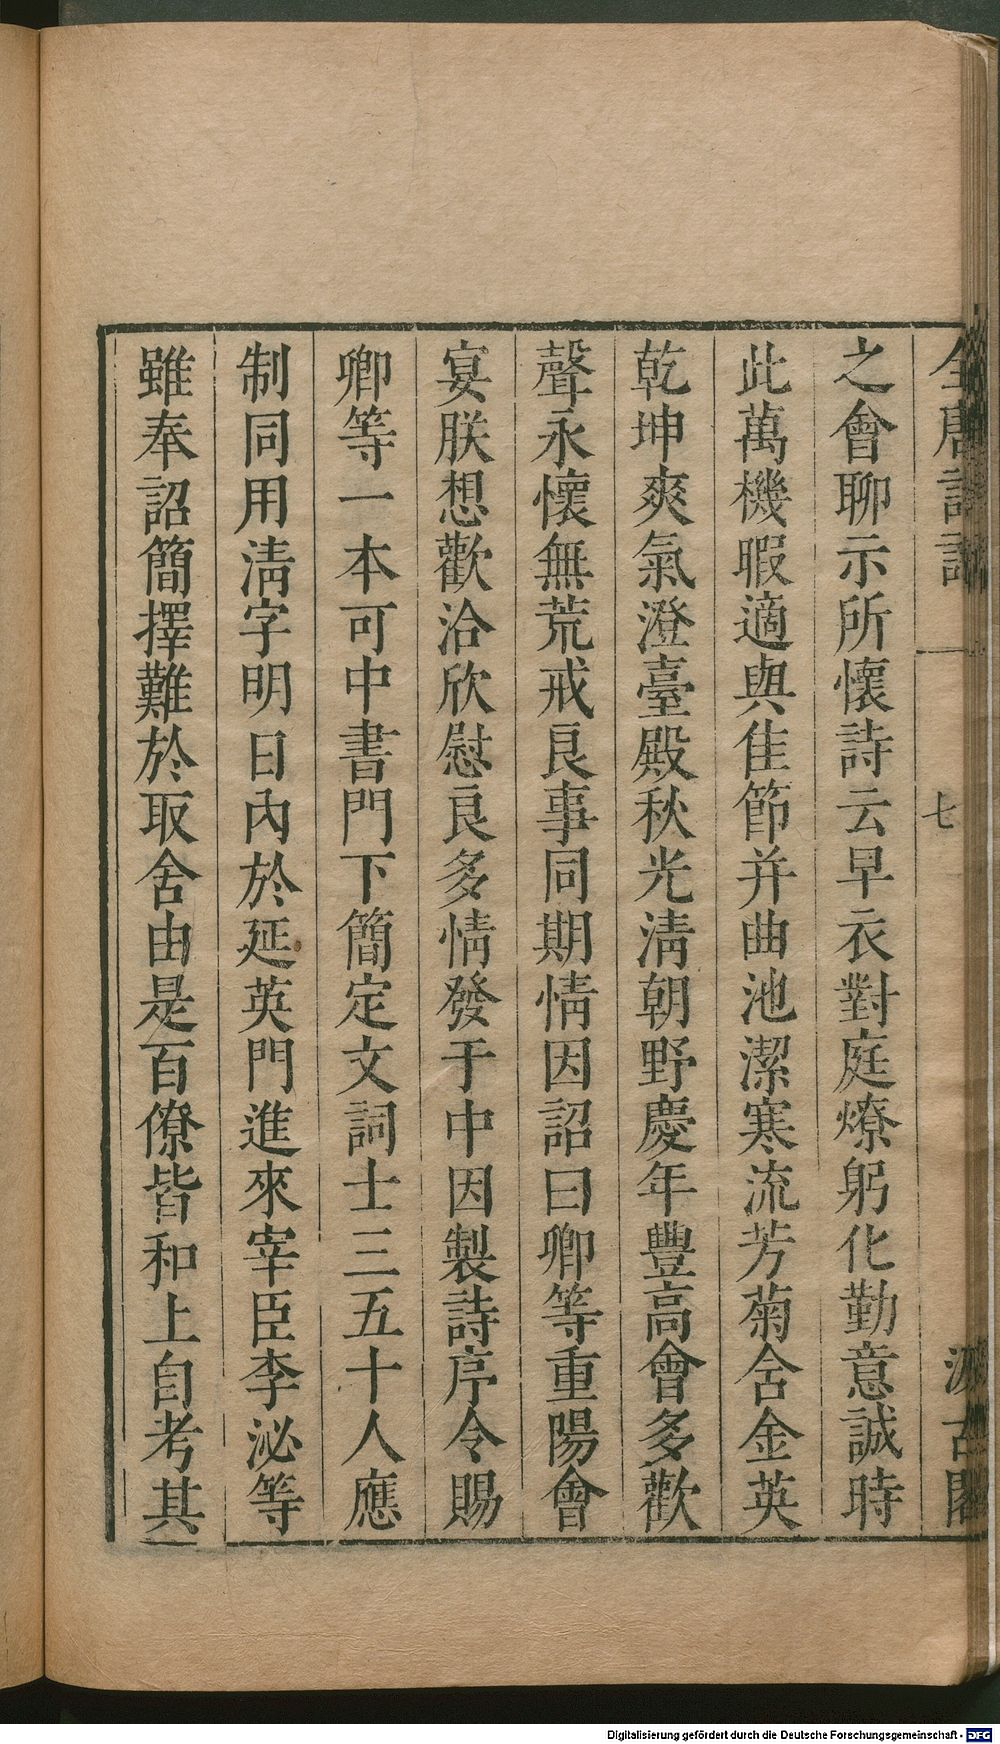 全唐詩話 一 七 汲古閣
之會聊示所懷詩云早衣對庭燎躬化勤意誠時
此萬機暇適與佳節并曲池潔寒流芳菊含金英
乾坤爽氣澄臺殿秋光清朝野慶年豐高會多歡
聲永懷無荒戒良事同期情因詔曰卿等重陽會
宴朕想歡洽欣慰良多情發于中因製詩序令賜
卿等一本可中書門下簡定文詞士三五十人應
制同用清字明日內於延英門進來宰臣李泌等
雖奉詔簡擇難於取舍由是百僚皆和上自考其
Digitalisierung gefördert durch die Deutsche Forschungsgemeinschaft - DFG